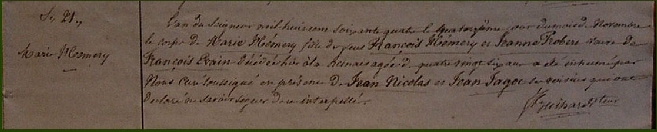 Sr. 21.
Marie Hémery
L'an du Seigneur mil huit cent soixante quatre le quatorzième jour du mois de Novembre
le corps de Marie Hémery fille de feus François Hémery et Jeanne Robert veuve de
François Evain décédée hier à la agée de quatre vingt six ans a été inhumé par
Nous Curé soussigné en présence de Jean Nicolas et Jean Jagoc ses voisins qui ont
déclaré ne savoir signer de ce interpellés.